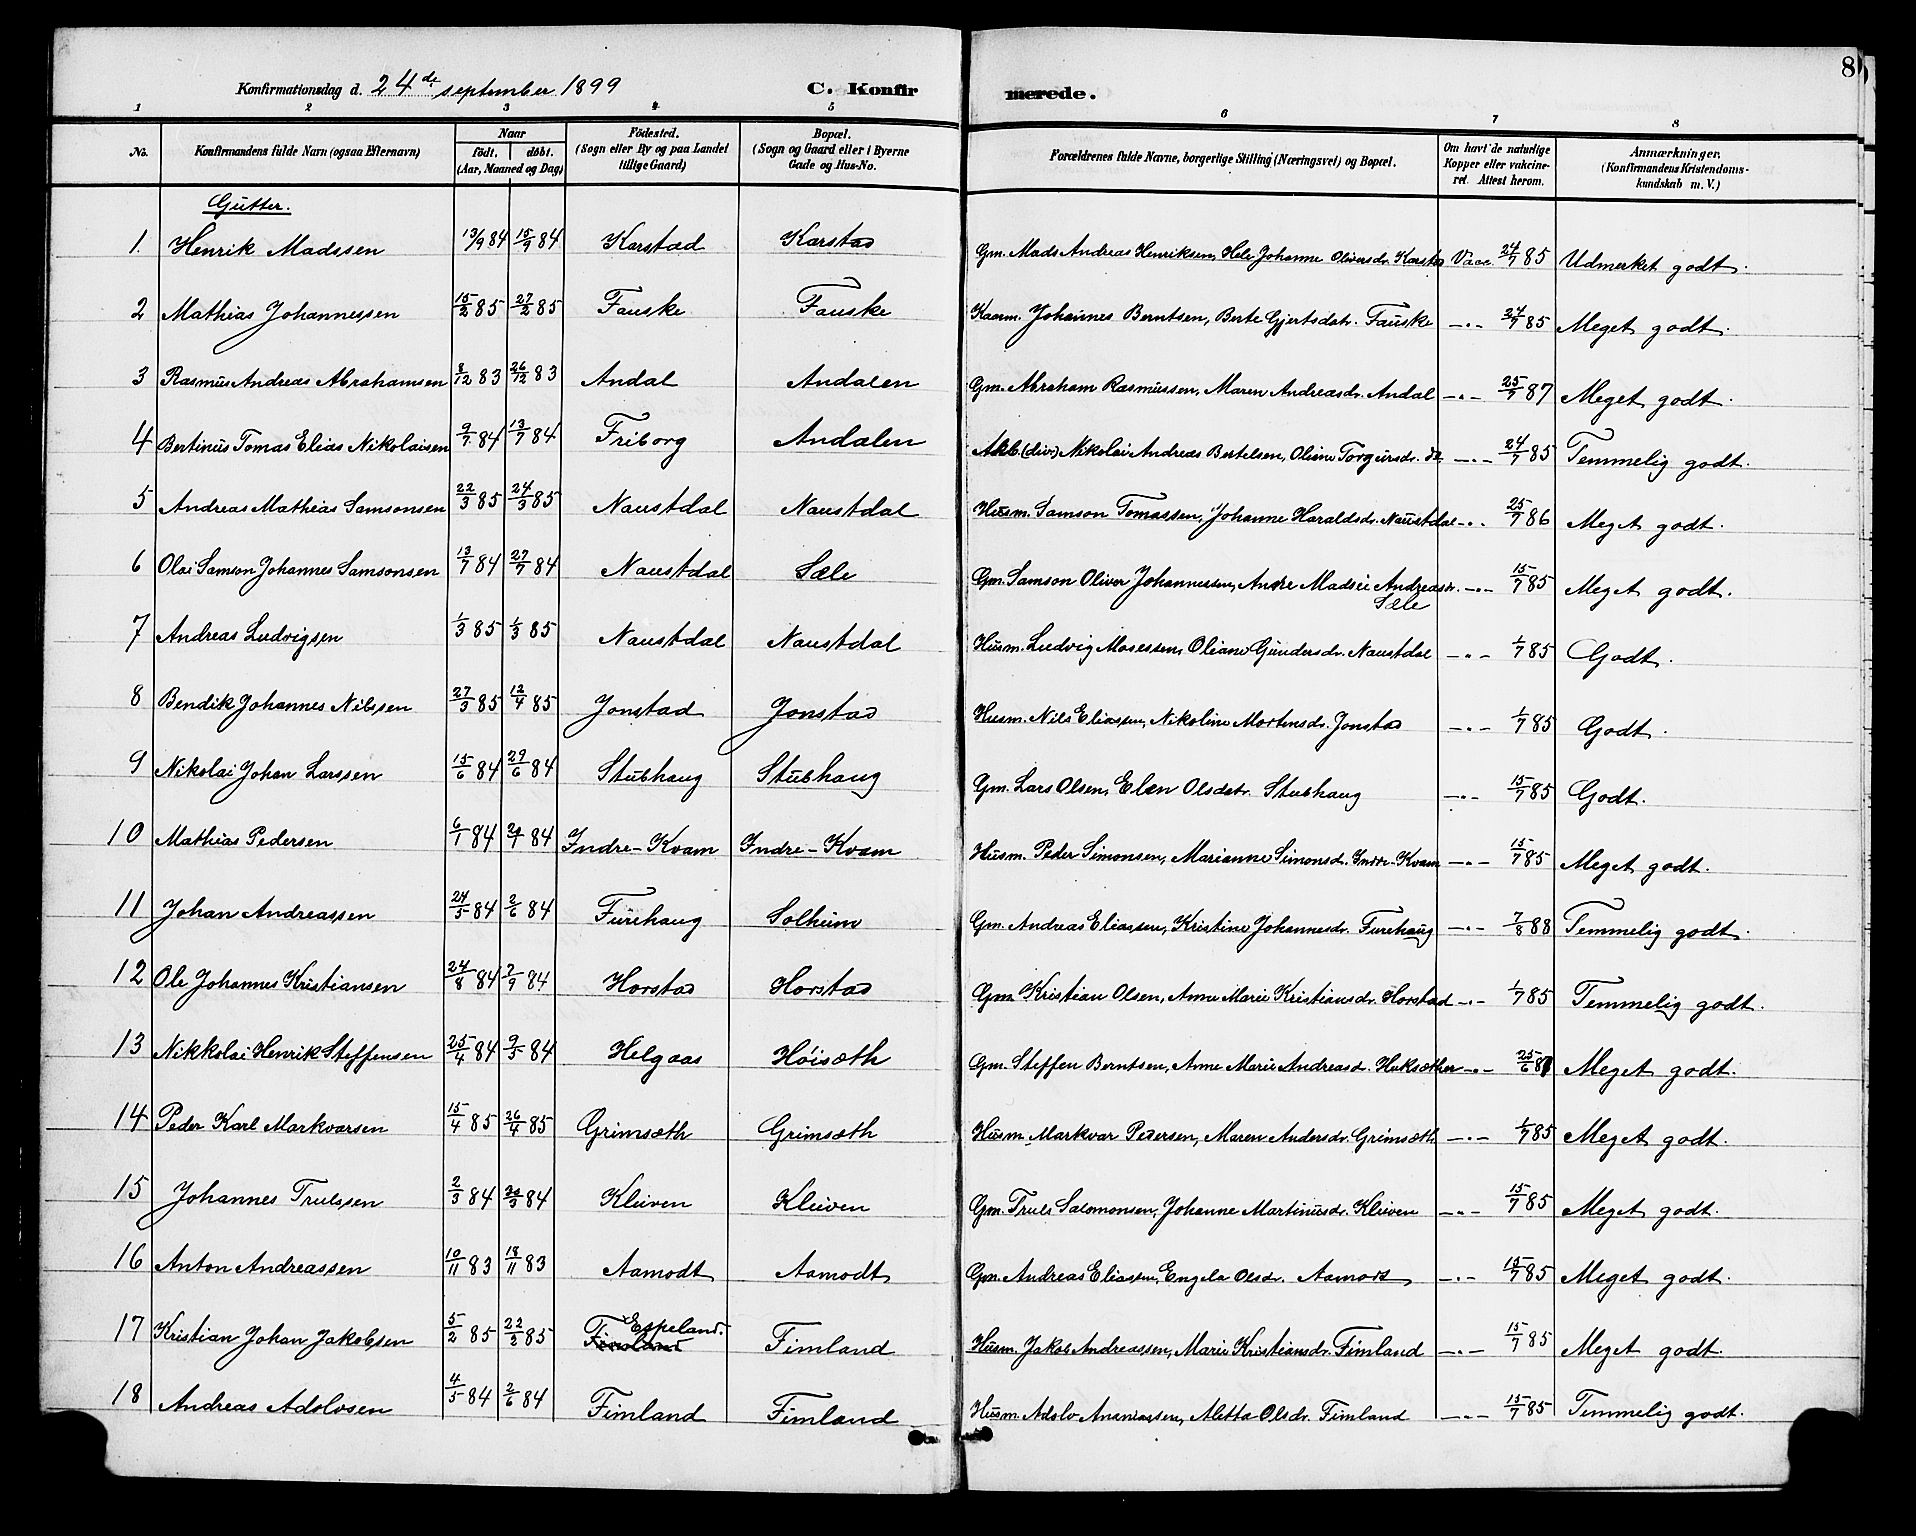 8
Konfirmationsdag d. 24de september 1899 C. Konfirmerede.
1 2 3 4 5 6 7 8
No. | Konfirmandens fulde Navn (ogsaa Efternavn) | Naar født. | døbt. (Aar, Maaned og Dag) | Födested. (Sogn eller By og paa Landet tillige Gaard) | Bopæl. (Sogn og Gaard eller i Byerne Gade og Hus-No. | Forældrenes fulde Navne, borgerlige Stilling (Næringsvei) og Bopæl. | Om havt de naturlige Kopper eller vakcineret. Attest herom. | Anmærkninger. (Konfirmandens Kristendomskundskab m. V.)
Gutter.
1. Henrik Madssen 13/9 84 15/9 84 Karstad Karstad Gm. Mads Andreas Henriksen, Hele Johanne Oliversdr. Karstad Vacc. 24/7 85 Udmerket godt.
2 Mathias Johannessen 15/2 85 27/2 85 Fauske Fauske Kaarm. Johannes Berntsen, Berte Gjertsdatr. Fauske —"— 24/7 85 Meget godt.
3 Rasmus Andreas Abrahamsen 8/12 83 26/12 83 Andal Andalen Gm. Abraham Rasmussen, Maren Andreasdr. Andal —"— 25/7 87 Meget godt.
4 Bertinus Tomas Elias Nikolaisen 9/7 84 13/7 84 Friborg Andalen Arb. (div) Nikolai Andreas Bertelsen, Oliane Torgersdr. do. —"— 24/7 85 Temmelig godt.
5 Andreas Mathias Samsonsen 22/3 85 24/3 85 Naustdal Naustdal Husm. Samson Tomassen, Johanne Haraldsdr. Naustdal —"— 25/7 86 Meget godt.
6 Olai Samson Johannes Samsonsen 13/7 84 27/7 84 Naustdal Sæle Gm. Samson Oliver Johannessen, Andre Madsii Andreasdr. Sæle —"— 15/7 85 Meget godt.
7 Andreas Ludvigsen 1/3 85 1/3 85 Naustdal Naustdal Husm. Ludvig Mosessen, Oliane Gundersdr. Naustdal —"— 1/7 85 Godt.
8 Bendik Johannes Nilssen 27/3 85 12/4 85 Jonstad Jonstad Husm. Nils Eliassen, Nikoline Mortensdr. Jonstad —"— 1/7 85 Godt.
9 Nikolai Johan Larssen 15/6 84 29/6 84 Stubhaug Stubhaug Gm. Lars Olsen, Elen Olsdatr. Stubhaug —"— 15/7 85 Godt.
10 Mathias Pedersen 6/1 84 84 Indre-Kvam Indre-Kvam Husm. Peder Simonsen, Marianne Simonsdr. Indre-Kvam —"— 15/7 85 Meget godt.
11 Johan Andreassen 24/5 84 2/6 84 Furehaug Solheim Gm. Andreas Eliassen, Kristine Johannesdr. Furehaug —"— 7/8 88 Temmelig godt.
12 Ole Johannes Kristiansen 24/8 84 7/9 84 Horstad Horstad Gm. Kristian Olsen, Anne Marie Kristiansdr. Horstad —"— 1/7 85 Temmelig godt.
13 Nikkolai Henrik Steffensen 25/4 84 9/5 84 Helgaas Höisæth Gm. Steffen Berntsen, Anne Marie Andreasd. Huksæther —"— 25/6 8 Meget godt.
14 Peder Karl Markvarsen 15/4 85 26/4 85 Grimsæth Grimsæth Husm. Markvar Pedersen, Maren Andersdr. Grimsæth —"— 1/7 85 Meget godt.
15 Johannes Trulssen 2/3 84 84 Kleiven Kleiven Gm. Truls Salomonsen, Johanne Martinusdr. Kleiven —"— 15/7 85 Meget godt.
16 Anton Andreassen 10/11 83 18/11 83 Aamodt Aamodt Gm. Andreas Eliassen, Engela Olsdr. Aamodt —"— 15/7 85 Meget godt.
17 Kristian Johan Jakobsen 5/2 85 22/2 85 Espeland. Fimland Fimland Husm. Jakob Andreassen, Marie Kristiansdr. Fimland —"— 15/7 85 Meget godt.
18 Andreas Adolvsen 4/5 84 2/6 84 Fimland Fimland Husm. Adolv Ananiassen, Aletta Olsdr. Fimland —"— 15/7 85 Temmelig godt.